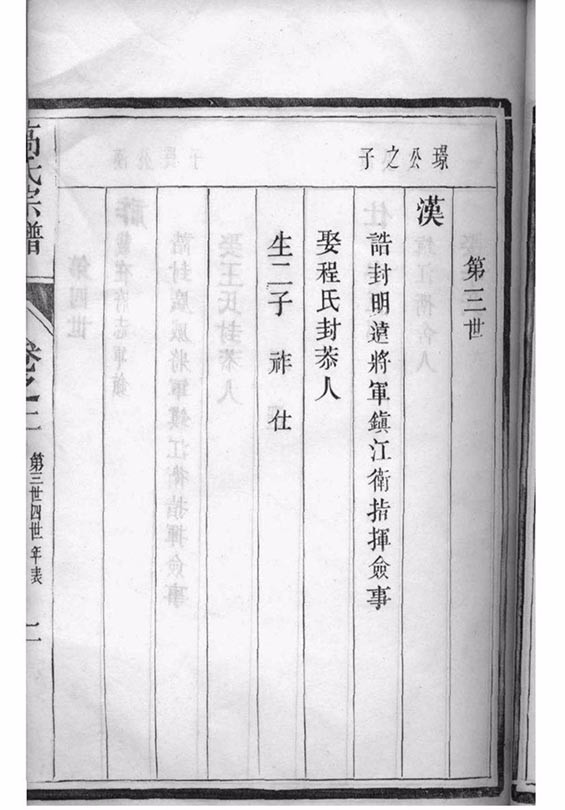 璟公之子
第三世
漢
誥封明遠將軍鎮江衛指揮僉事
娶程氏封恭人
生二子 祚 仕
高氏宗譜
卷之二
第三世四世年表
二